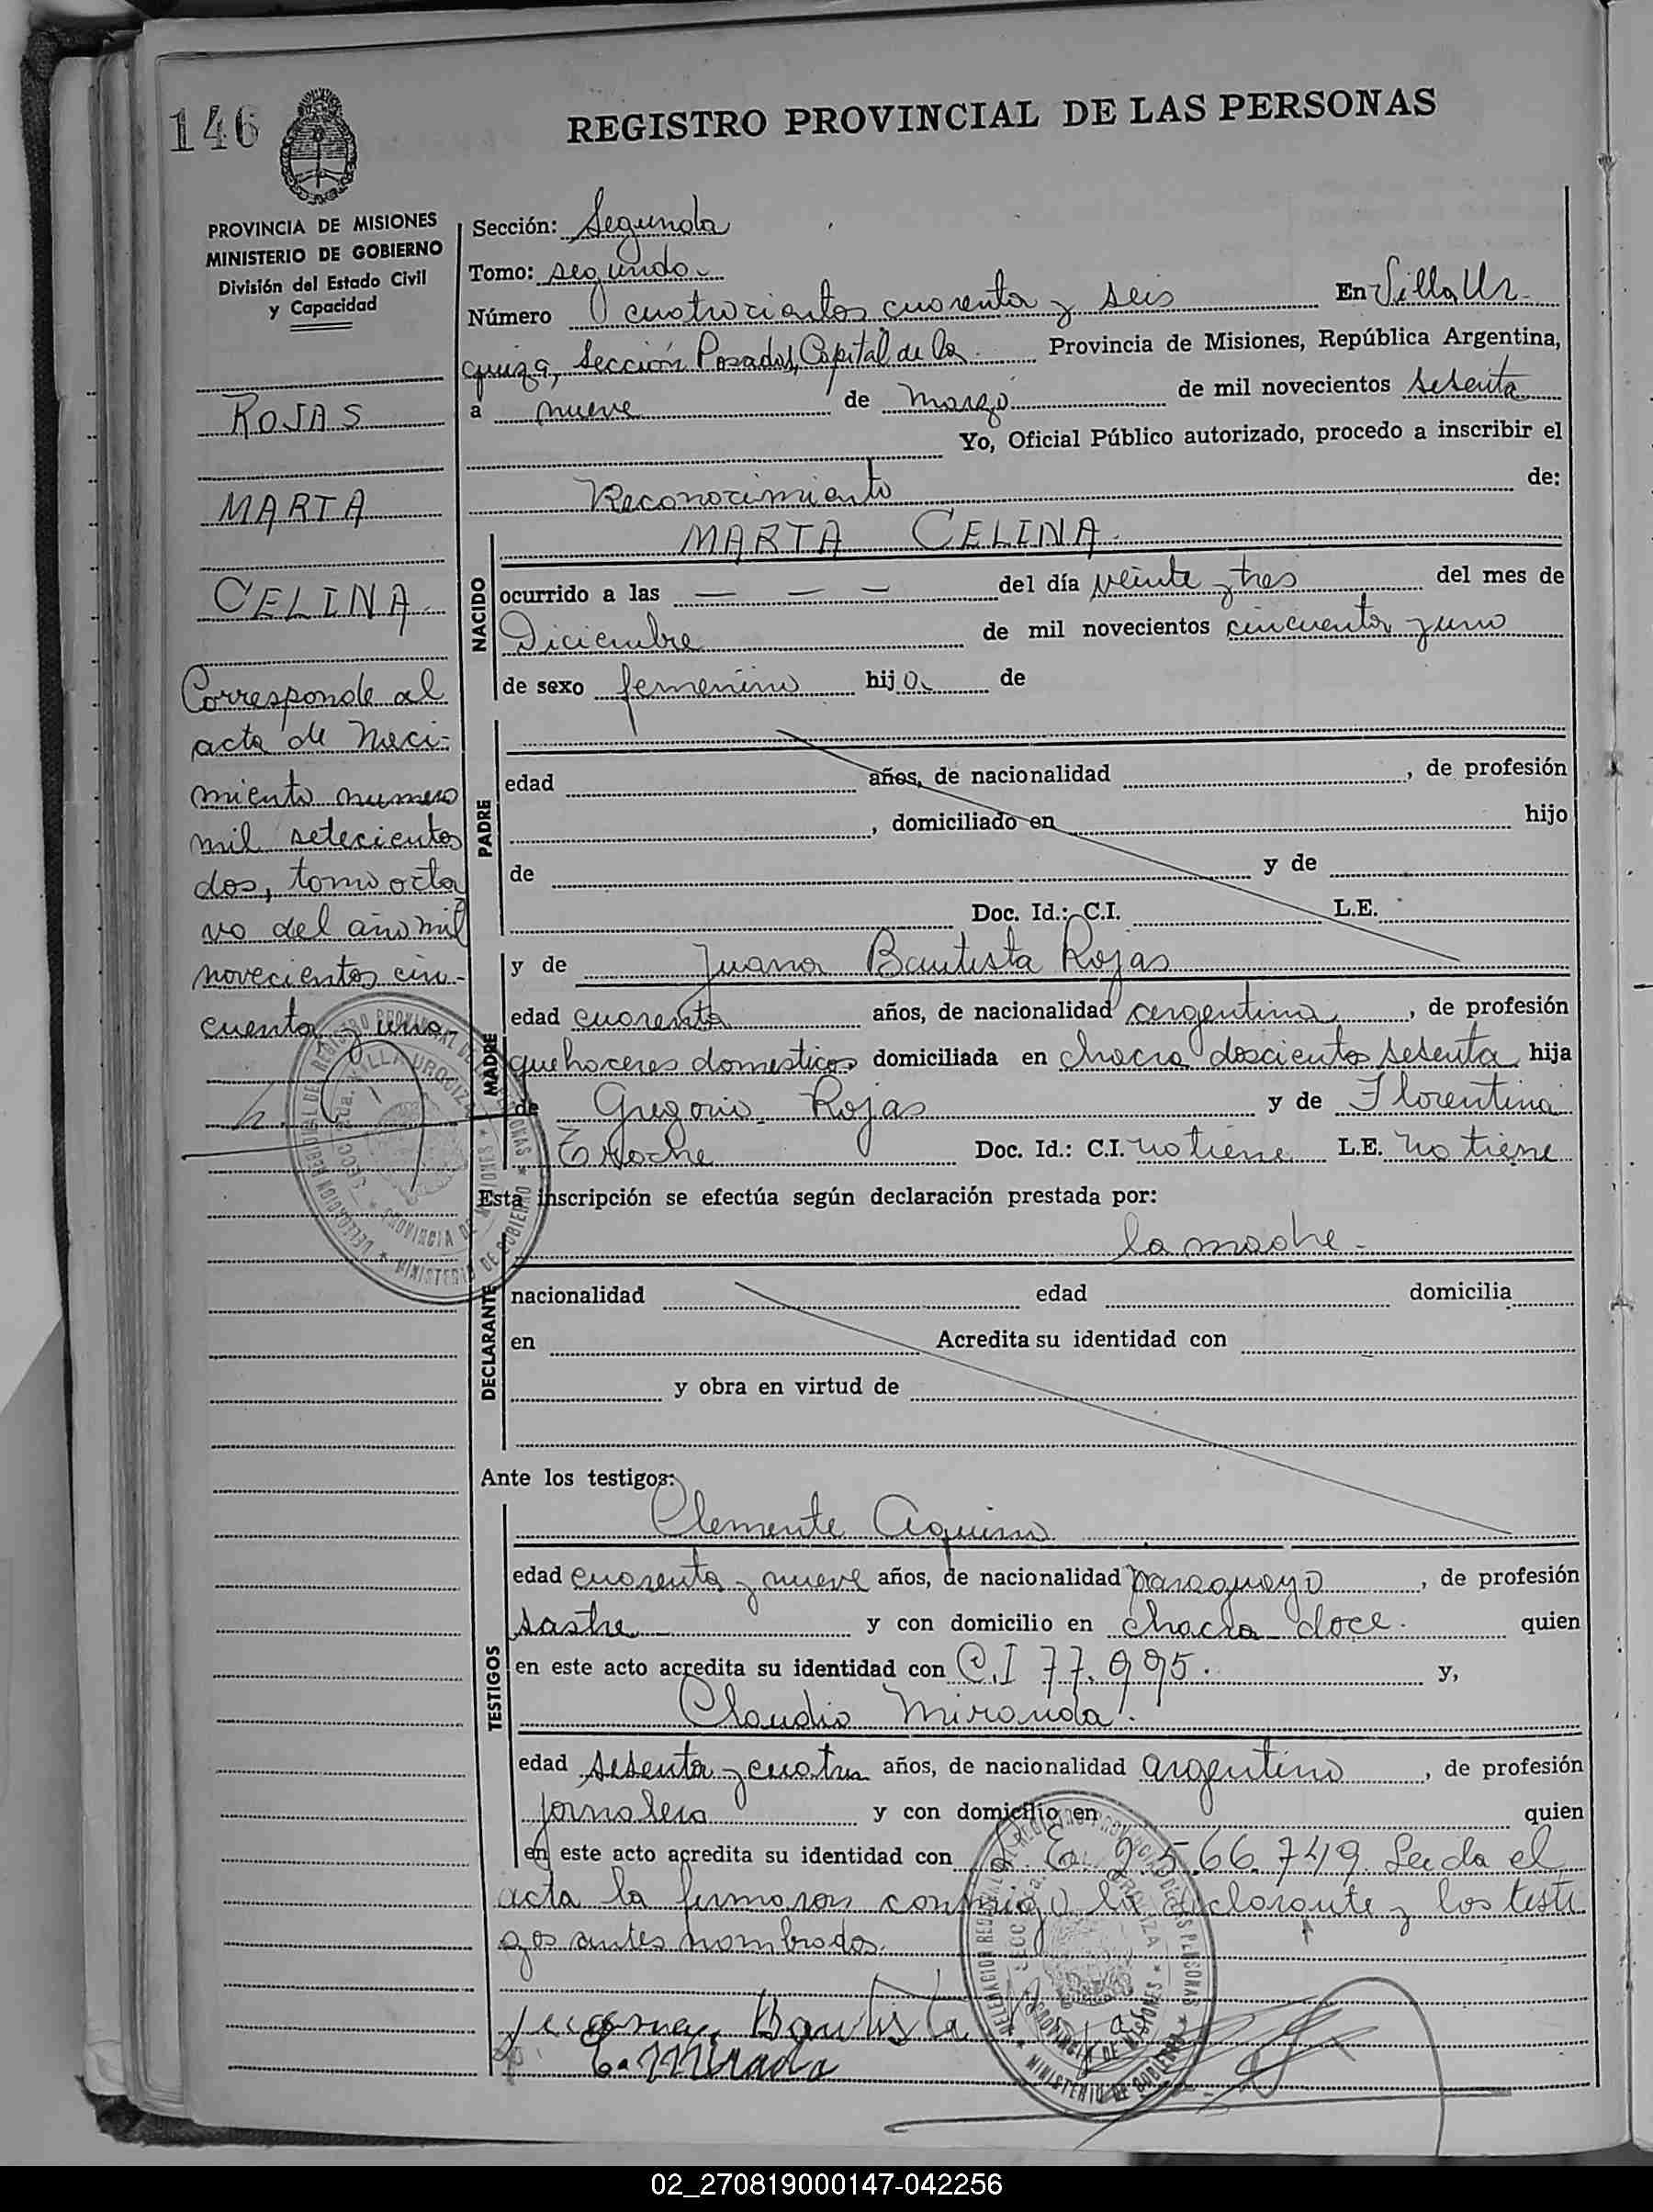 146
REGISTRO PROVINCIAL DE LAS PERSONAS
PROVINCIA DE MISIONES
MINISTERIO DE GOBIERNO
División del Estado Civil
y Capacidad
ROJAS
MARTA
CELINA
Corresponde al
acta de Naci-
miento numero
mil setecientos
dos, tomo octa
vo del año mil
novecientos cin-
cuenta y uno
Sección: Segunda
Tomo: segundo
Número cuatrocientos cuarenta y seis En Villa Ur
quiza, Sección Posadas, Capital de la Provincia de Misiones, República Argentina,
a nueve de marzo de mil novecientos setenta
Yo, Oficial Público autorizado, procedo a inscribir el
Reconocimiento de:
NACIDO
MARTA CELINA
ocurrido a las — — — del día veinte y tres del mes de
Diciembre de mil novecientos cincuenta y uno
de sexo femenino hija de
PADRE
edad años, de nacionalidad , de profesión
, domiciliado en hijo
de y de
Doc. Id.: C.I. L.E.
MADRE
y de Juana Bautista Rojas
edad cuarenta años, de nacionalidad argentina, de profesión
quehaceres domesticos domiciliada en chacra doscientos setenta hija
de Gregorio Rojas y de Florentina
Doc. Id.: C.I. no tiene L.E. no tiene
Esta inscripción se efectúa según declaración prestada por:
DECLARANTE
la madre.-
nacionalidad edad domicilia
en Acredita su identidad con
y obra en virtud de
Ante los testigos:
TESTIGOS
Clemente Aquino
edad cuarenta y nueve años, de nacionalidad paraguayo, de profesión
sastre y con domicilio en chacra doce. quien
en este acto acredita su identidad con C.I 77.995. y,
Claudio Miranda.
edad sesenta y cuatro años, de nacionalidad argentino, de profesión
jornalero y con domicilio en quien
en este acto acredita su identidad con L.E. 2.566.749. Leida el
acta la firmaron conmigo la declarante y los testi
gos antes nombrados.
Bautista
02_270819000147-042256